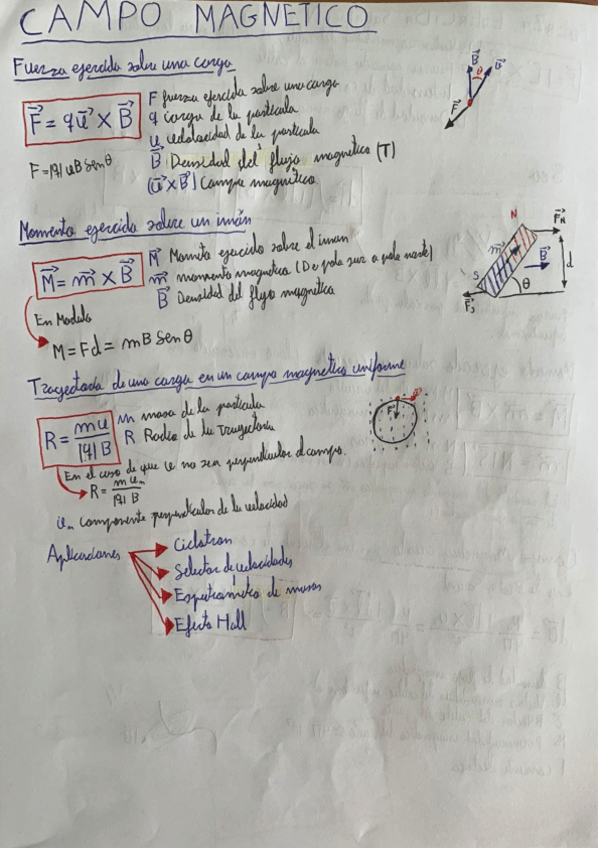 CAMPO MAGNETICO
Fuerza ejercida sobre una carga
F⃗ = q u⃗ x B⃗
F fuerza ejercida sobre una carga
q carga de la partícula
u, velolacidad de la partícula
B⃗ Densidad del flujo magnetico (T)
(u⃗ x B⃗) Campo magnitico
F = |q| u B Sen θ
B⃗
θ
u⃗
F⃗
Momento ejercido sobre un imán
M⃗ = m⃗ x B⃗
M⃗ Mometo ejercido sobre el iman
m⃗ momento magnetico (De polo sur a polo norte)
B⃗ Densidad del flujo magnetica
En Modulo
M = Fd = mB Sen θ
N
F⃗N
m⃗
B⃗
d
S
θ
F⃗s
Trayectoria de una carga en un campo magnetico uniforme
R = mu / |q| B
m masa de la partícula
R Radio de la trayectoria
F
En el caso de que u no sea perpendicular al campo.
R = m uₙ / |q| B
uₙ componente perpendicular de la velocidad
Aplicaciones
Ciclotron
Selector de velocidades
Espectrometro de masas
Efecto Hall